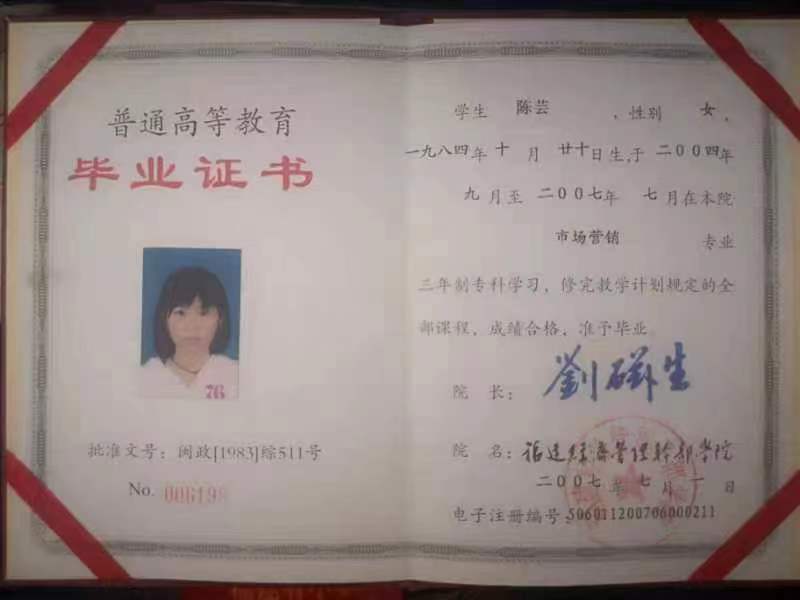 普通高等教育
毕业证书
76
批准文号：闽政[1983]综511号
No. 006198
学生 陈芸 ，性别 女，
一九八四年 十 月 廿十日生，于 二００四年
九 月至 二００七年 七 月在本院
市场营销 专业
三年制专科学习，修完教学计划规定的全
部课程，成绩合格，准予毕业。
院 长： 劉磁生
院 名：福建经济管理幹部学院
二００七 年 七 月 一 日
电子注册编号：506011200706000211